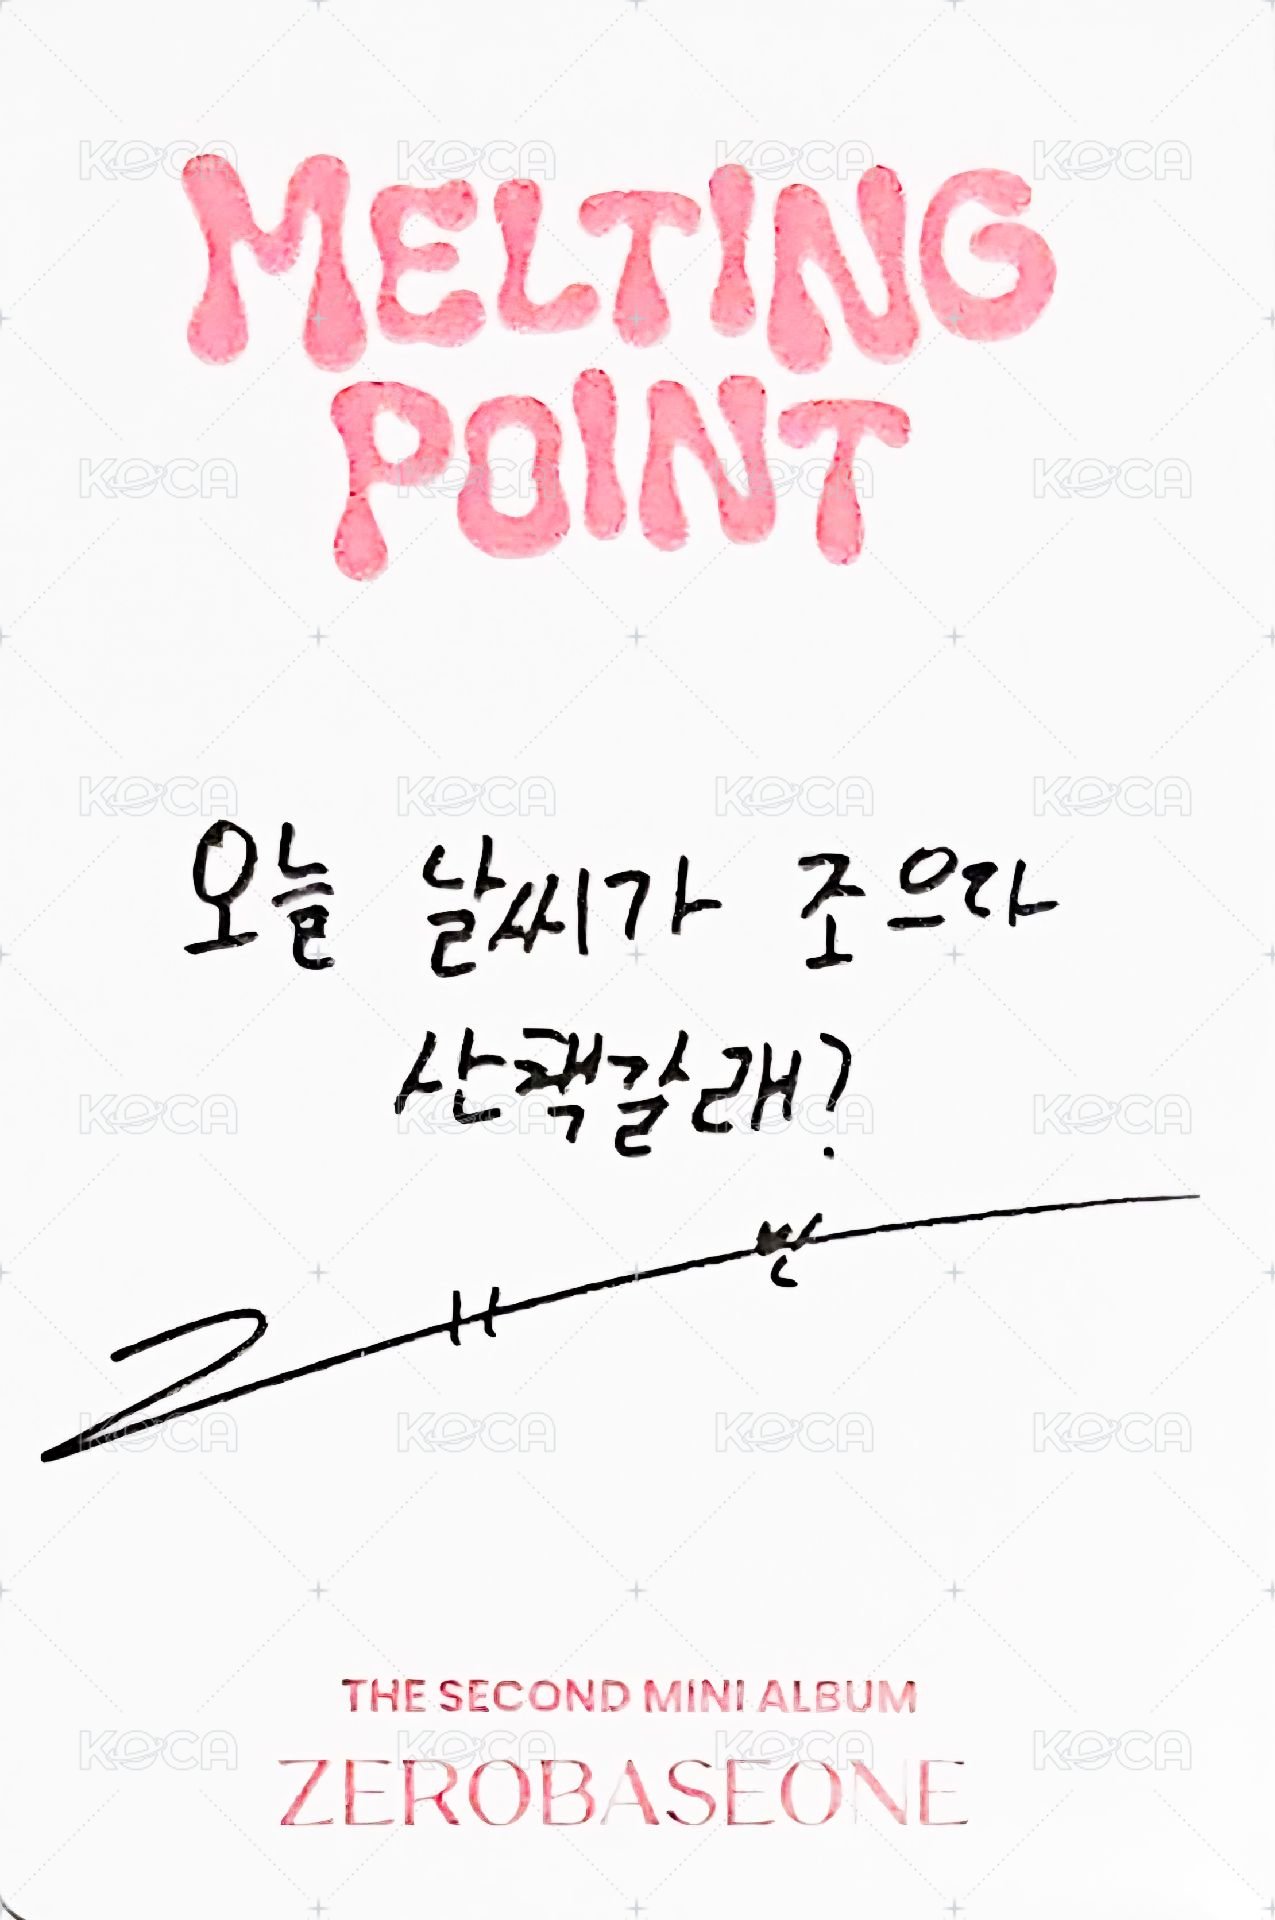 MELTING
POINT
오늘 날씨가 조으다
산책갈래?
THE SECOND MINI ALBUM
ZEROBASEONE
KOCA